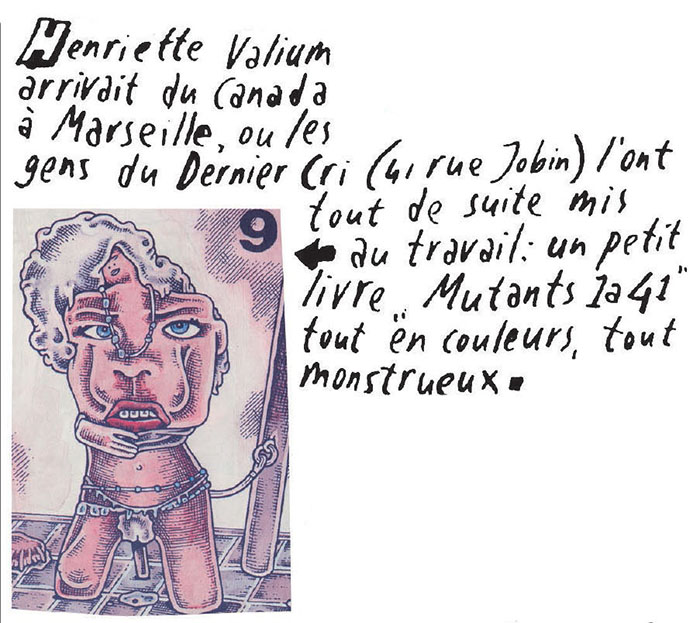 Henriette Valium
arrivait du Canada
à Marseille, ou les
gens du Dernier Cri (41 rue Jobin) l'ont
tout de suite mis
au travail: un petit
livre „Mutants 1a41"
tout en couleurs, tout
monstrueux.
9